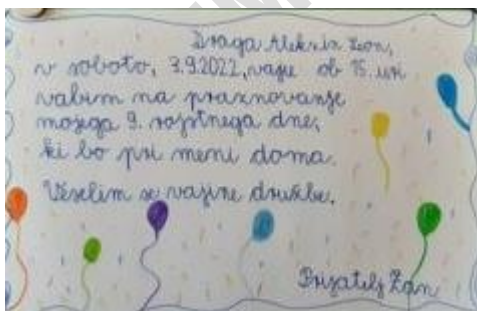 Draga Aleks in Leon,
v soboto, 3.9.2022, vaju ob 15. uri
vabim na praznovanje
mojega 9. rojstnega dne,
ki bo pri meni doma.
Veselim se vajine družbe.
Prijatelj Žan